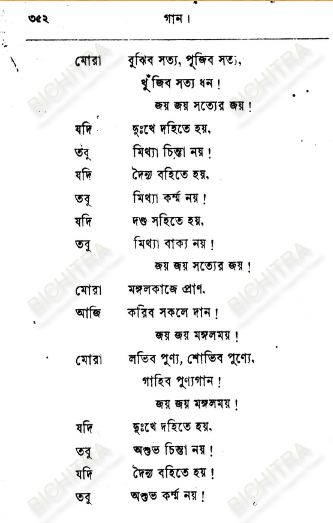 ৩৫২ গান।
মোরা বুঝিব সত্য, পূজিব সত্য,
খুঁজিব সত্য ধন!
জয় জয় সত্যের জয়!
যদি দুঃখে দহিতে হয়,
তবু মিথ্যা চিন্তা নয়!
যদি দৈন্য বহিতে হয়,
তবু মিথ্যা কর্ম্ম নয়!
যদি দণ্ড সহিতে হয়,
তবু মিথ্যা বাক্য নয়!
জয় জয় সত্যের জয়!
মোরা মঙ্গলকাজে প্রাণ,
আজি করিব সকলে দান!
জয় জয় মঙ্গলময়!
মোরা লভিব পুণ্য, শোভিব পুণ্যে,
গাহিব পুণ্যগান!
জয় জয় মঙ্গলময়!
যদি দুঃখে দহিতে হয়,
তবু অশুভ চিন্তা নয়!
যদি দৈন্য বহিতে হয়!
তবু অশুভ কর্ম্ম নয়!
BICHITRA
BICHITRA
BICHITRA
BICHITRA
BICHITRA
BICHITRA